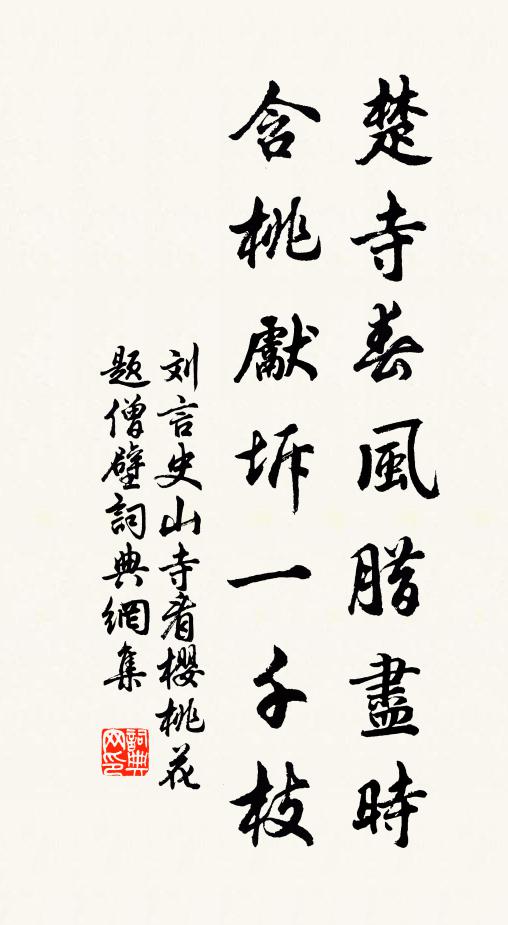 楚寺春風腊盡時
含桃獻坼一千枝
刘言史山寺看櫻桃花
题僧壁詞典網集
詞典
网印